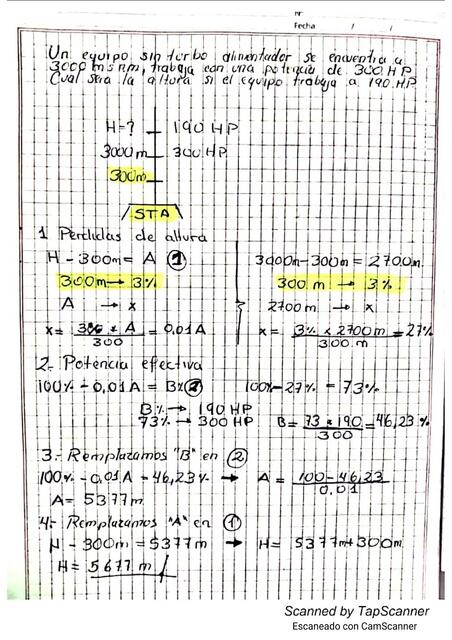 Nº
Fecha / /
Un equipo sin turbo alimentador se encuentra a
3000 msnm, trabaja con una potencia de 300 HP
Cual sera la altura si el equipo trabaja a 190 HP
H=? 190 HP
3000m 300 HP
300m
STA
1 Perdidas de altura
H - 300m = A ①
300m → 3%
A → x
x = 3% * A / 300 = 0,01 A
3000m - 300m = 2700m
300 m → 3%
2700m → x
x = 3% x 2700m / 300m = 27%
2.- Potencia efectiva
100% - 0,01A = B% ② 100% - 27% = 73%
B% → 190 HP
73% → 300 HP
B = 73 * 190 / 300 = 46,23%
3.- Remplazamos "B" en ②
100% - 0,01 A = 46,23% → A = 100 - 46,23 / 0,01
A = 5377m
4.- Remplazamos "A" en ①
H - 300m = 5377m → H = 5377m+300m
H = 5677 m
Scanned by TapScanner
Escaneado con CamScanner